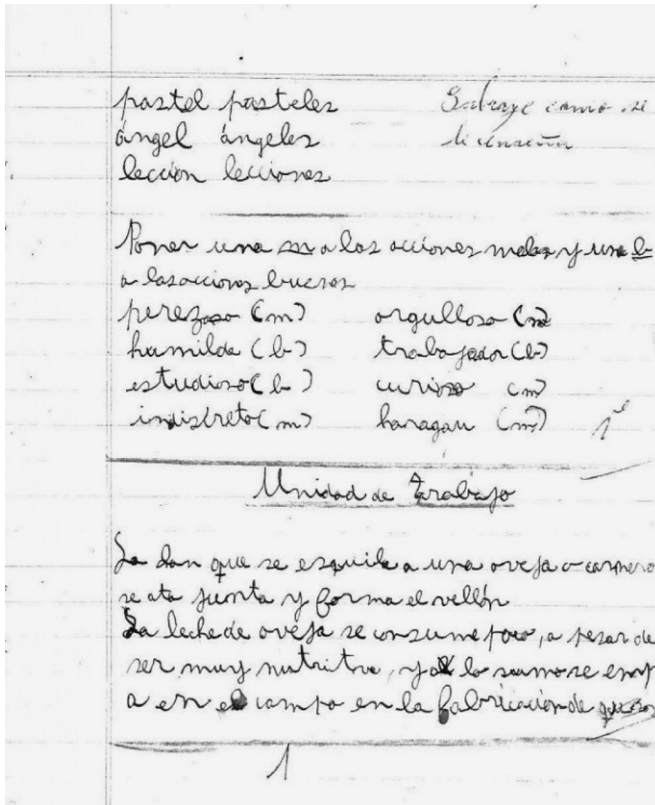 pastel pasteles
Subraye como se
ángel ángeles
le enseña
lección lecciones
Poner una m a las acciones malas y una b
a las acciones buenas
perezoso (m) orgulloso (m)
humilde (b) trabajador (b)
estudioso (b) curioso (m)
indiscreto (m) haragan (m)
Unidad de Trabajo
La lan que se esquila a una oveja o carnero
se ata junta y forma el vellón
La leche de oveja se consume poco, a pesar de
ser muy nutritva, y a lo sumo se emp
a en el campo en la fabricación de quesos
1